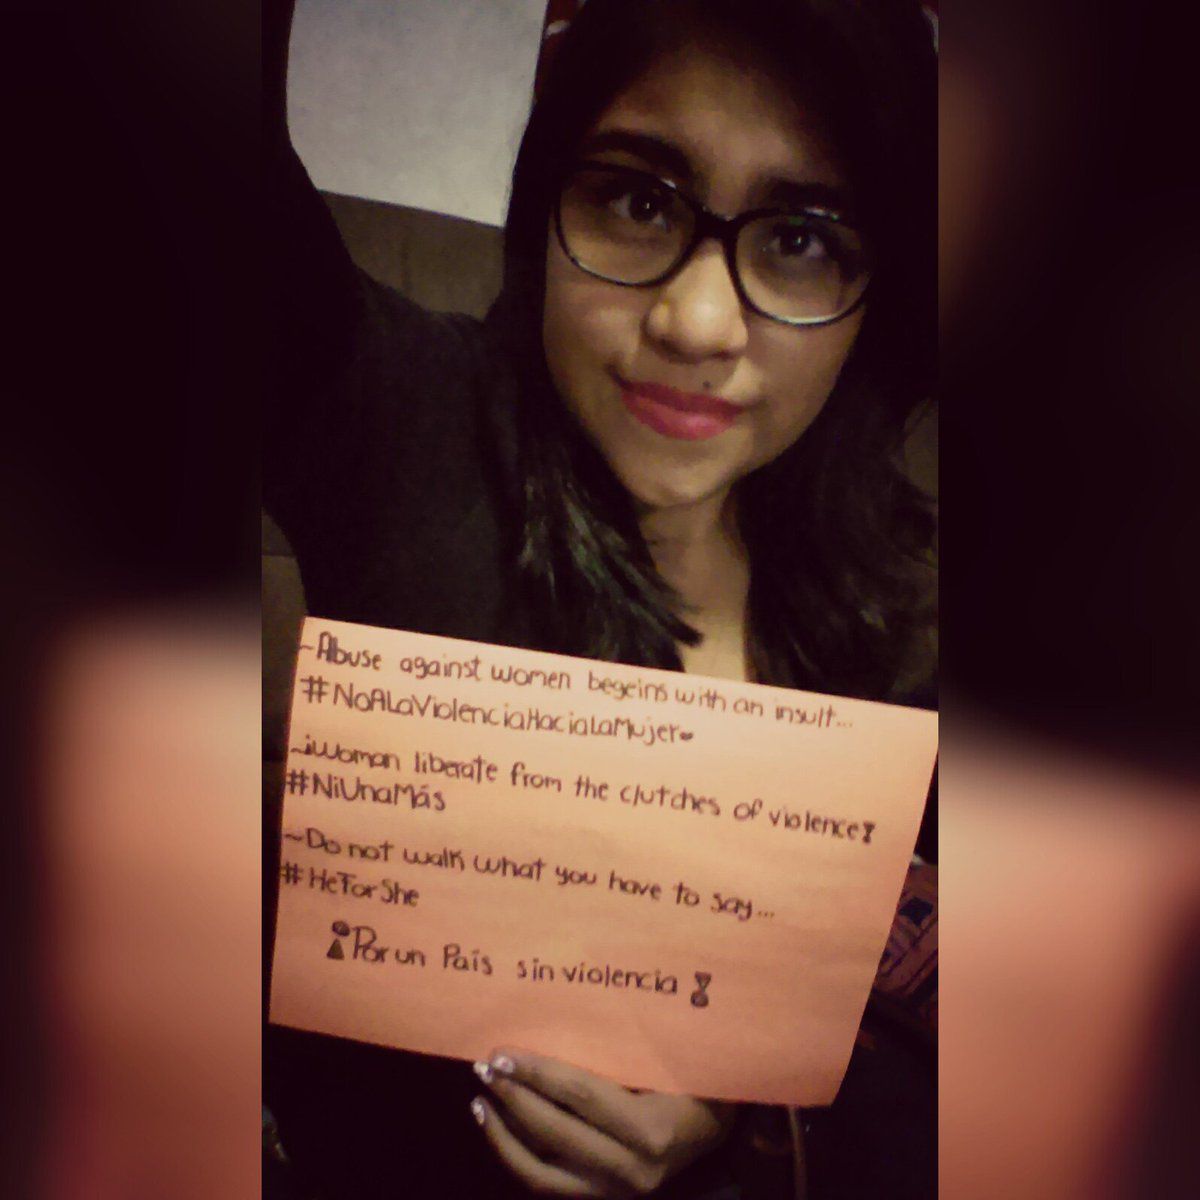 ~Abuse against women begeins with an insult...
#NoALaViolenciaHaciaLaMujer❤
~¡Woman liberate from the clutches of violence!
#NiUnaMás
~Do not walk what you have to say...
#HeForShe
¡Por un País sin violencia!